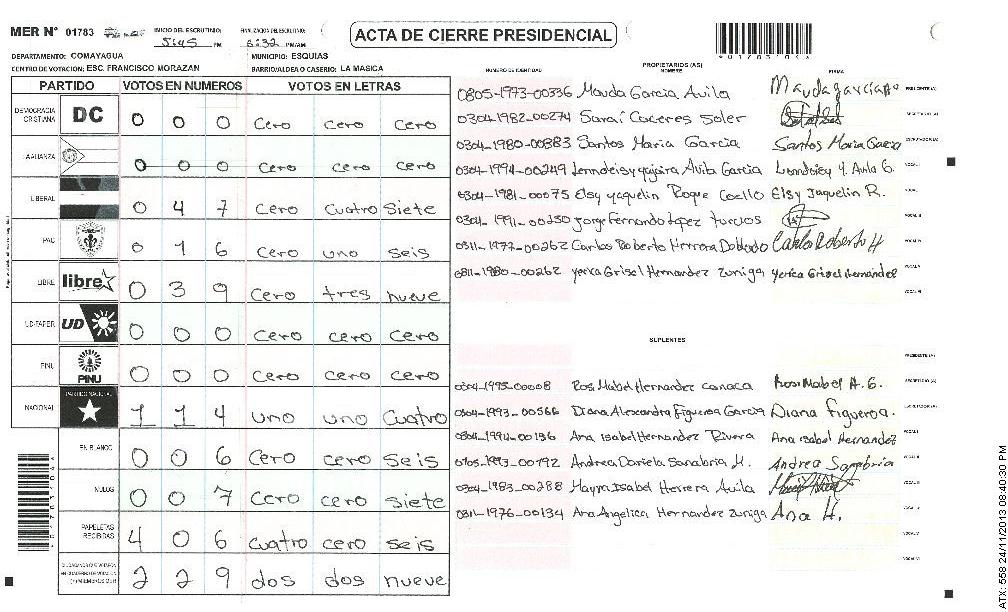 MER N° 01783
INICIO DEL ESCRUTINIO: 5:45 PM
FINALIZACION DEL ESCRUTINIO: 6:32 PM/AM
ACTA DE CIERRE PRESIDENCIAL
DEPARTAMENTO: COMAYAGUA
MUNICIPIO: ESQUIAS
CENTRO DE VOTACION: ESC. FRANCISCO MORAZAN
BARRIO/ALDEA O CASERIO: LA MASICA
*01783104*
PARTIDO VOTOS EN NUMEROS VOTOS EN LETRAS
DEMOCRACIA CRISTIANA DC 0 0 0 cero cero cero
LA ALIANZA 0 0 0 cero cero cero
LIBERAL 0 4 7 cero cuatro siete
PAC 0 1 6 cero uno seis
LIBRE libre 0 3 9 cero tres nueve
UD-FAPER UD 0 0 0 cero cero cero
PINU PINU 0 0 0 cero cero cero
NACIONAL PARTIDO NACIONAL 1 1 4 uno uno cuatro
EN BLANCO 0 0 6 cero cero seis
NULOS 0 0 7 cero cero siete
PAPELETAS RECIBIDAS 4 0 6 cuatro cero seis
CIUDADANOS QUE VOTARON EN CUADERNO DE VOTACION (+) MIEMBROS MER 2 2 9 dos dos nueve
PROPIETARIOS (AS)
NUMERO DE IDENTIDAD NOMBRE FIRMA
0805-1973-00336 Mauda Garcia Avila PRESIDENTE (A)
0304-1982-00274 Saraí Caceres Soler SECRETARIO (A)
0304-1980-00383 Santos Maria Garcia Santos Maria Garcia ESCRUTADOR (A)
0304-1994-00249 Avila Garcia VOCAL I
0304-1981-00075 Elsy yaquelin Roque Coello Elsy Jaquelin R. VOCAL II
0304-1991-00250 Jorge Fernando Lopez turcios VOCAL III
0311-1977-00262 Carlos Roberto Herrera Doblado Carlos Roberto H VOCAL IV
0311-1980-00262 yerica Grisel Hernandez zuniga yerica Grisel Hernandez VOCAL V
VOCAL VI
SUPLENTES
PRESIDENTE (A)
0304-1995-00008 Rosi Mabel Hernandez canaca Rosi Mabel H. G. SECRETARIO (A)
0304-1993-00566 Diana Alexandra Figueroa Garcia Diana Figueroa. ESCRUTADOR (A)
0304-1994-00136 Ana Isabel Hernandez Rivera Ana Isabel Hernandez VOCAL I
0705-1993-00192 Andrea Daniela Sanabria M. Andrea Sanabria VOCAL II
0304-1983-00288 Mayra Isabel Herrera Avila VOCAL III
0311-1976-00134 Ana Angelica Hernandez zuniga Ana H. VOCAL IV
VOCAL V
VOCAL VI
ATX: 558 24/11/2013 08:40:30 PM